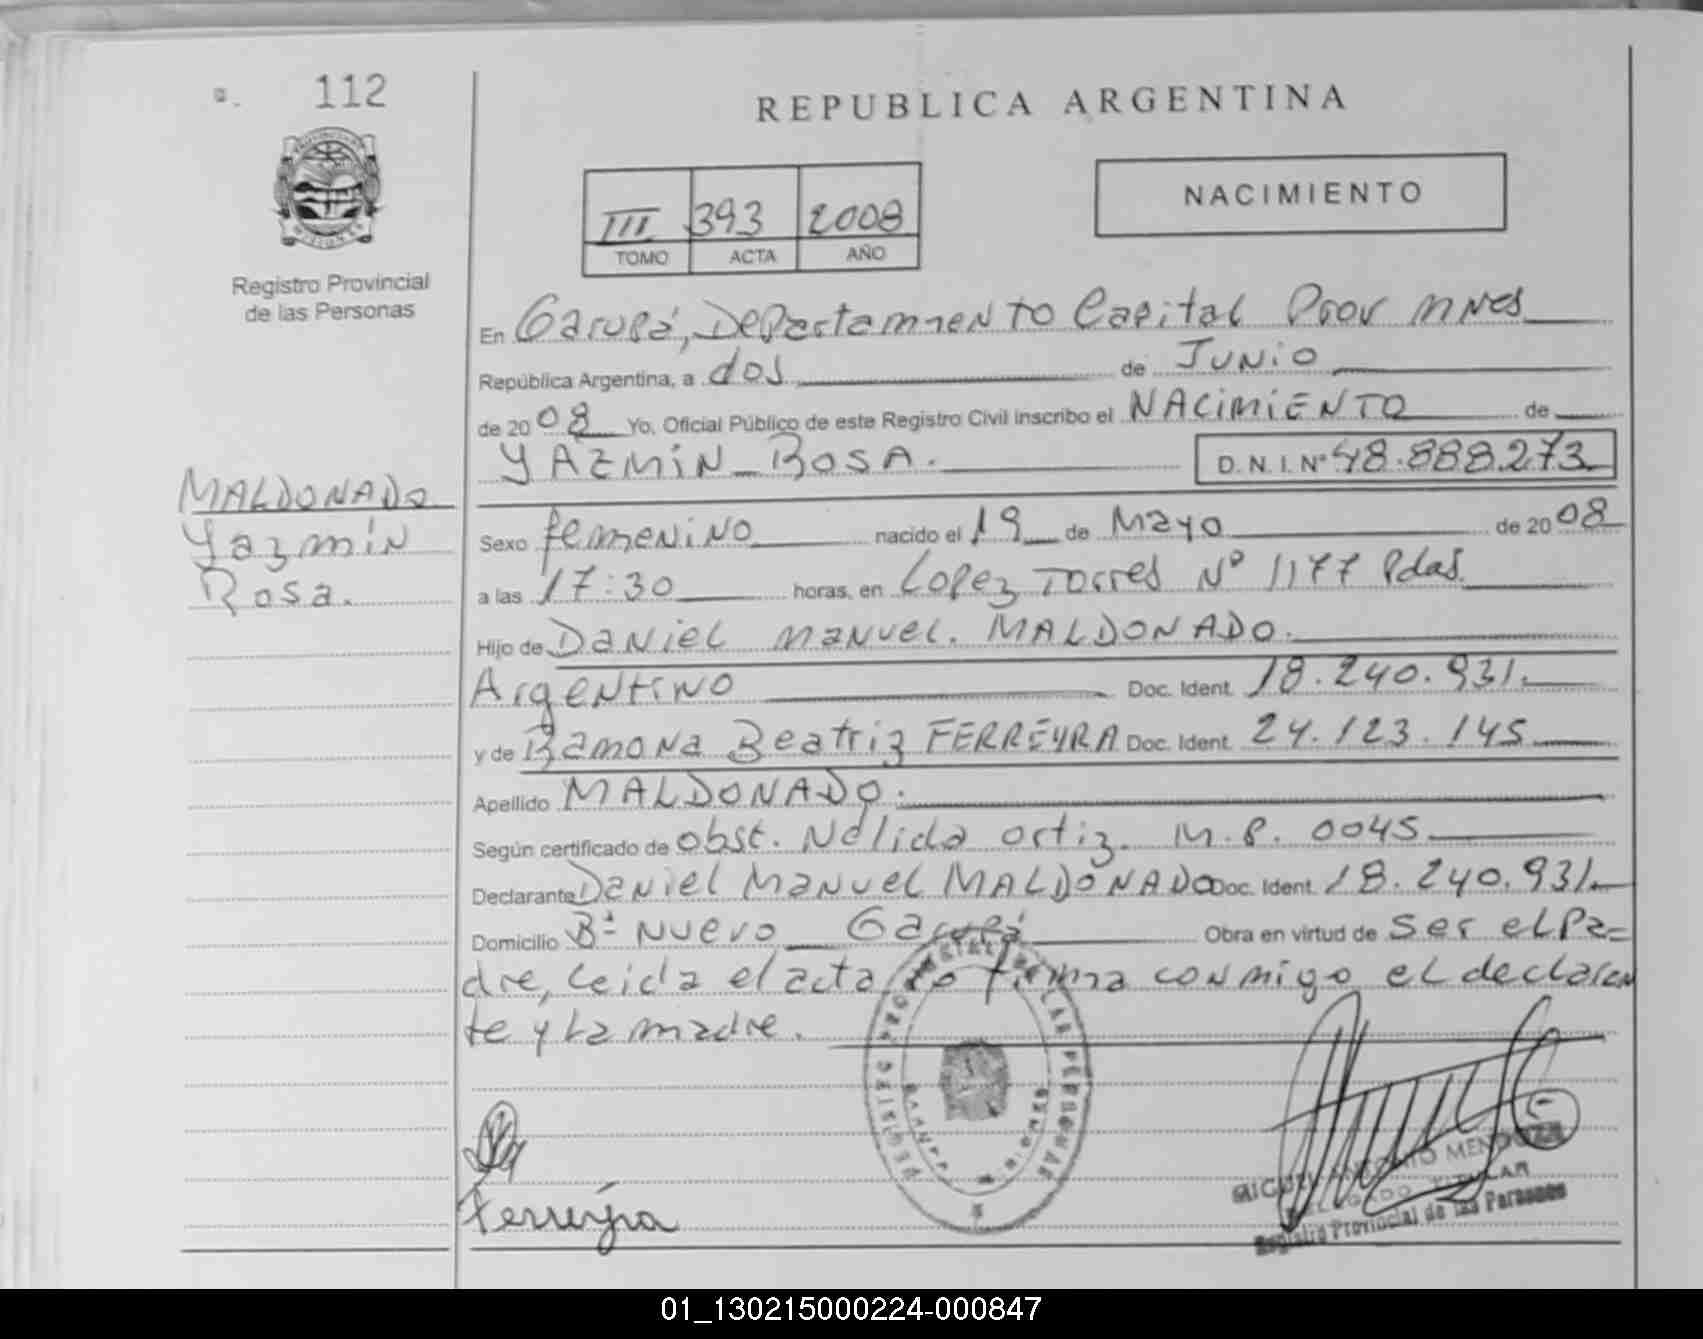 112
REPUBLICA ARGENTINA
NACIMIENTO
III 393 2008
TOMO ACTA AÑO
Registro Provincial
de las Personas
En Garupá, Departamento Capital Prov Mnes
República Argentina, a dos de Junio
de 2008 Yo, Oficial Público de este Registro Civil inscribo el NACIMIENTO de
YAZMIN ROSA. D.N.I. Nº 48.888.273
MALDONADO
Yazmín
Rosa.
Sexo femenino nacido el 19 de Mayo de 2008
a las 17:30 horas, en Lopez Torres Nº 1177 Pdas.
Hijo de Daniel Manuel. MALDONADO.
Argentino Doc. Ident. 18.240.931.
y de Ramona Beatriz FERREYRA Doc. Ident. 24.123.145
Apellido MALDONADO.
Según certificado de obst. Nélida Ortiz. M.P. 0045
Declarante Daniel Manuel MALDONADO Doc. Ident. 18.240.931
Domicilio Bº Nuevo Garupá Obra en virtud de ser el Pa=
dre, leida el acta la firma conmigo el declaran
te y la madre.
Ferreyra
MIGUEL ANTONIO MENDOZA
DELEGADO TITULAR
Registro Provincial de las Personas
01_130215000224-000847